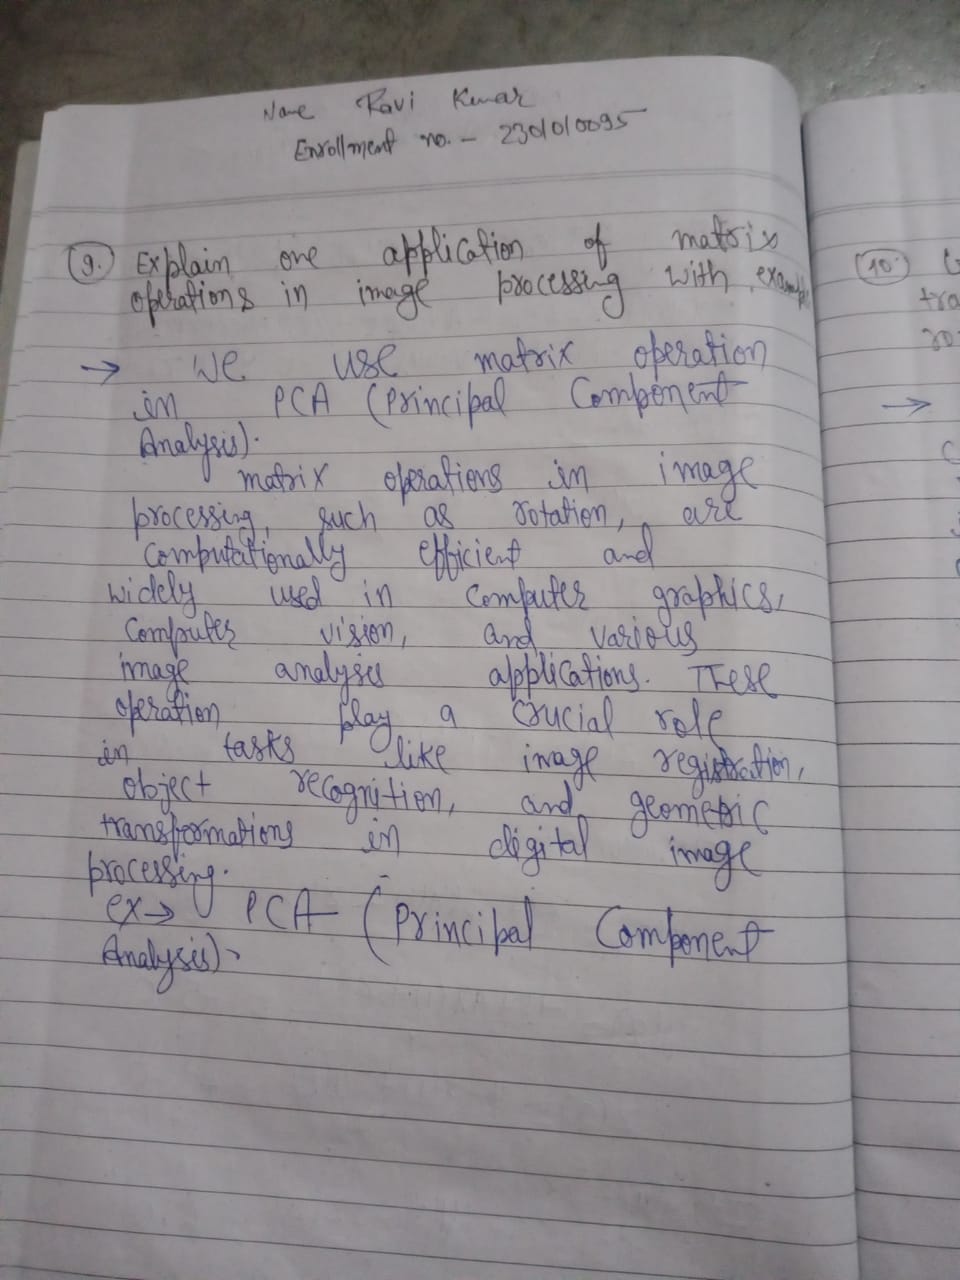 Name Ravi Kumar
Enrollment no. - 2301010095
9. Explain one application of matrix
operations in image processing with example
→ We use matrix operation
in PCA (Principal Component
Analysis).
matrix operations in image
processing, such as rotation, are
computationally efficient and
widely used in computer graphics,
computer vision, and various
image analyses applications. These
operation play a crucial role
in tasks like image registration,
object recognition, and geometric
transformations in digital image
processing.
ex → PCA - (Principal Component
Analysis).
10.
tra
→